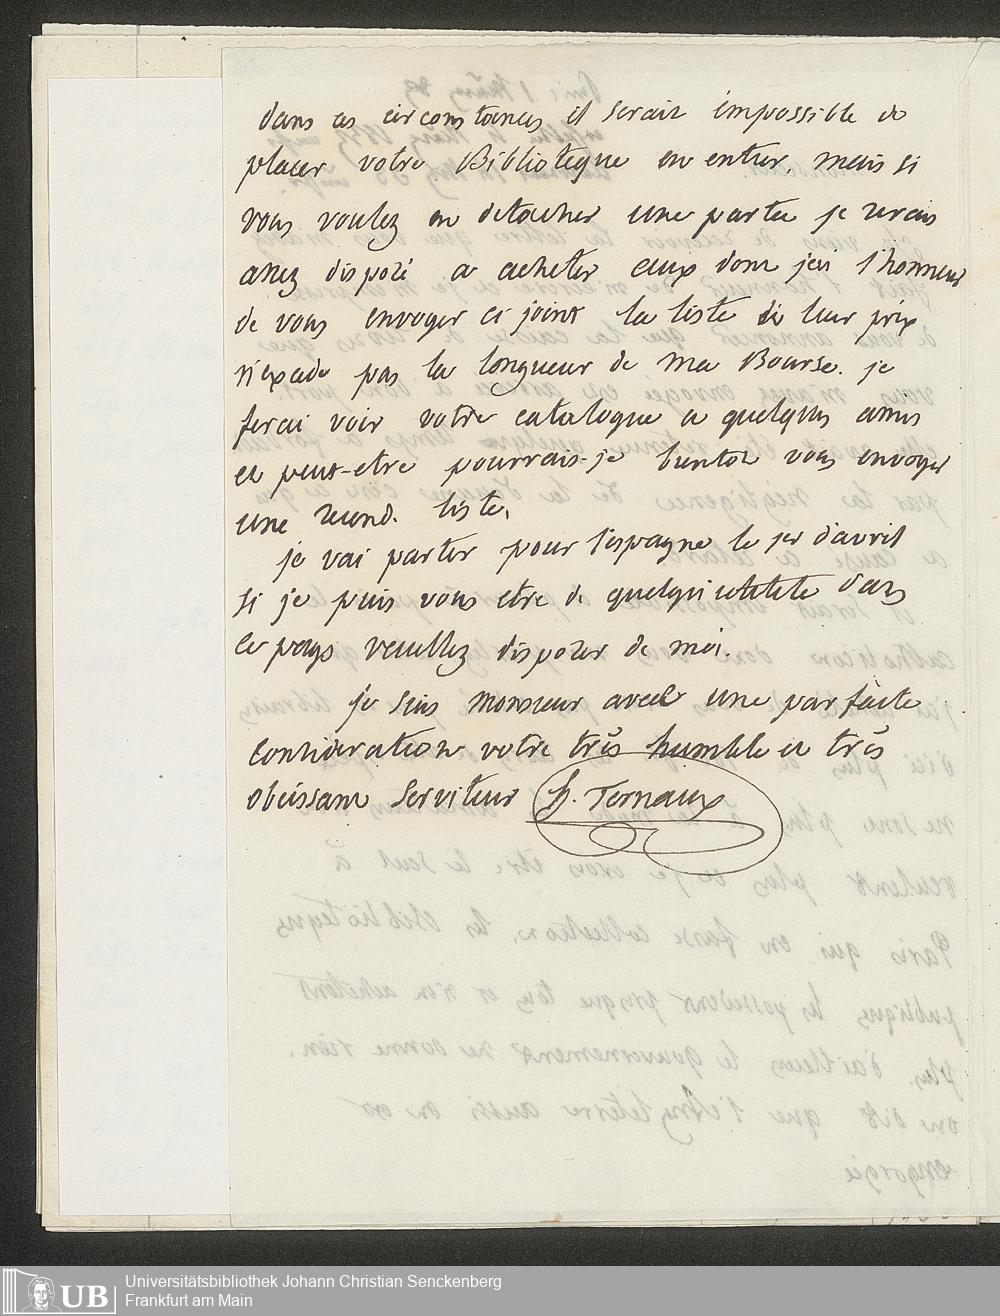 dans ces circonstances il serait impossible de
placer votre Biblioteque en entier, mais si
vous voulez en detacher une partie je serais
assez disposé a acheter ceux dont jai l'honneur
de vous envoyer ci joint la liste si leur prix
n'exade pas la longueur de ma Bourse. je
ferai voir votre catalogue a quelques amis
et peut-etre pourrais-je bientot vous envoyer
une second. liste.
je vai partir pour l'espagne le 1er d'avril
si je puis vous etre de quelqu'utilite dans
ce pays veuillez disposer de moi.
je suis Monsieur avec une parfaite
consideration votre très humble et très
obeissant Serviteur H. Ternaux
UB
Universitätsbibliothek Johann Christian Senckenberg
Frankfurt am Main